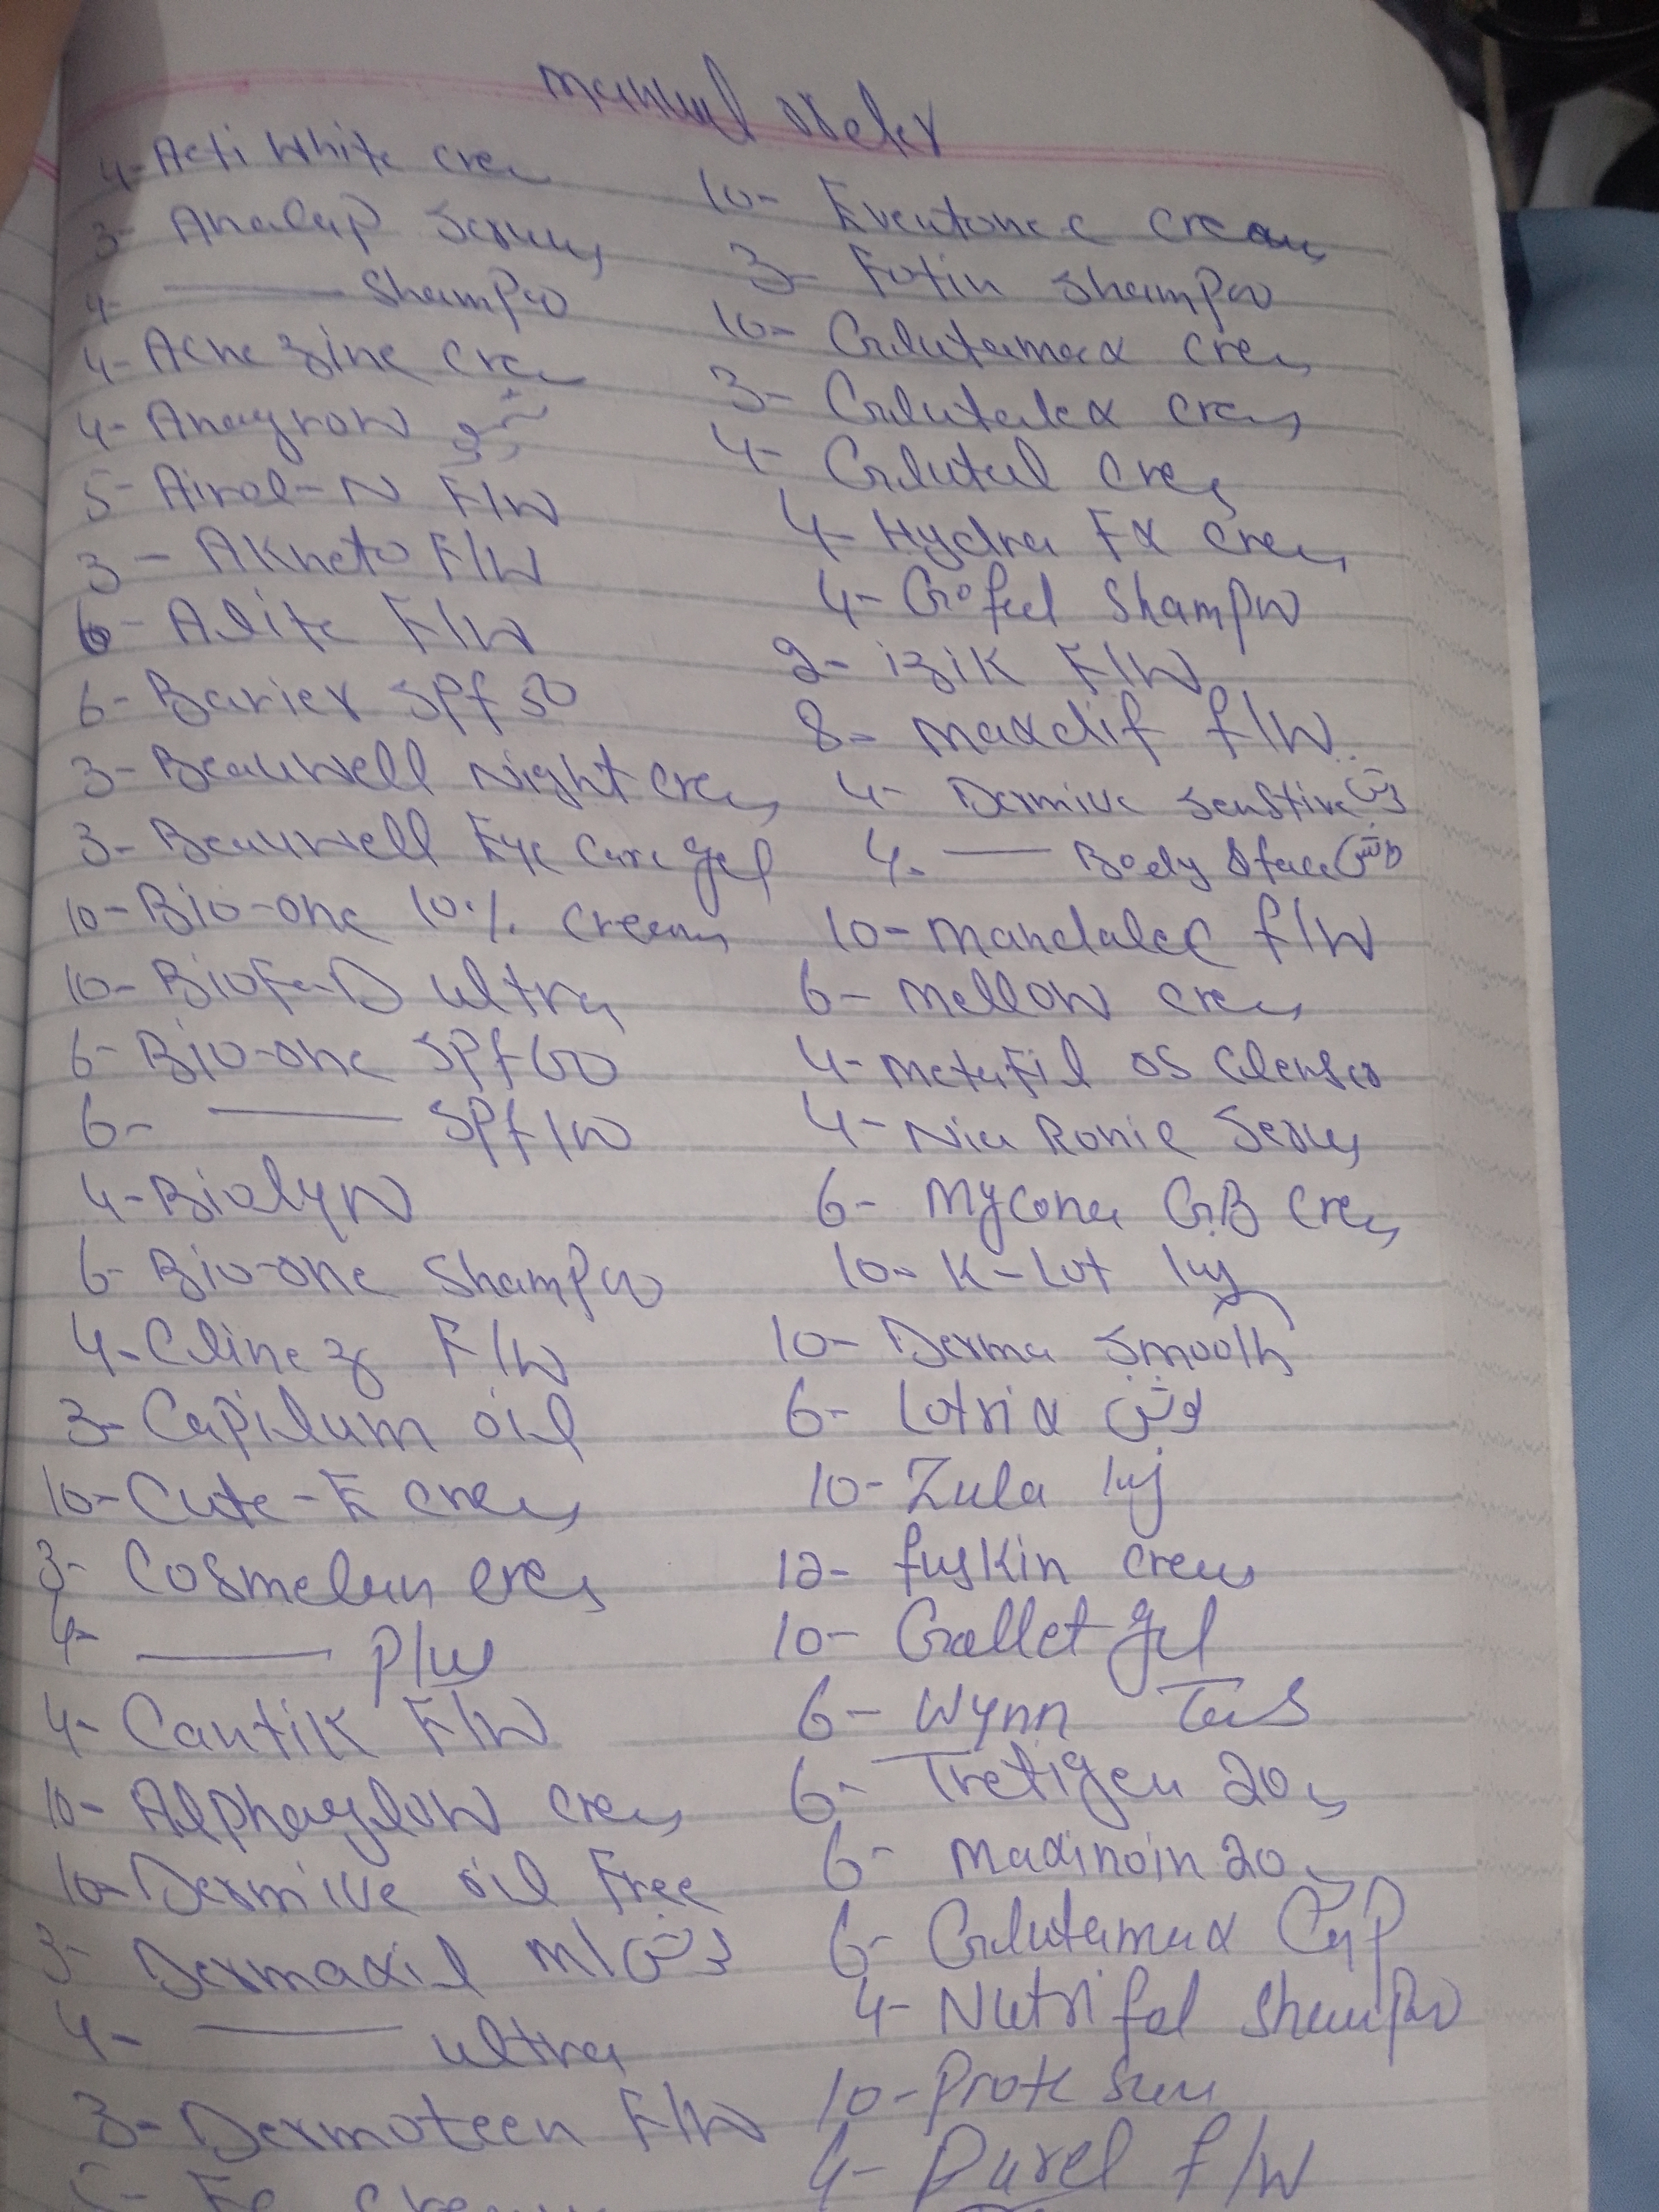 manual
4- Acti White cre
3- Analap Serum
4- —— Shampo
4- Acne zine cre
4- Anagrow
5- Airol-N F/W
3- Akneto F/W
6- Alite F/W
6- Barier SPf 50
3- Beauwell Night cre
3- Beauwell Eye Care gel
10- Bio-one 10% Cream
10- Biofa-D ultra
6- Bio-one SPf 60
6- —— SPf
4- Biolyn
6- Bio-one Shampo
4- Cline z F/W
3- Capilum oil
10- Cute-E cre
3- Cosmelan cre
4- —— P/W
4- Cautik F/W
10- Alphaglow cre
10- Dermive oil Free
3- Dermaxil M/لوشن
4- —— ultra
3- Dermoteen F/W
10- Eventone C cream
3- Fotin Shampo
10- Glutamax cre
3- Glutalex cre
4- Glutal cre
4- Hydra FX cre
4- Gofeel Shampo
2- izik F/W
8- maxdif f/W
4- Dermive Senstive لوشن
4- —— Body & face لوشن
10- mandalec f/W
6- mellow cre
4- metafil OS Clenser
4- Nia Ronic Serum
6- Mycona GB cre
10- K-Lot inj
10- Derma Smooth
6- Lotrix لوشن
10- Zula inj
12- fuskin cream
10- Gallet gel
6- Wynn Tab
6- Tretigen 20
6- Maxinoin 20
6- Glutamax Cap
4- Nutrifol Shampo
10- Prote Sun
4- Purel f/W